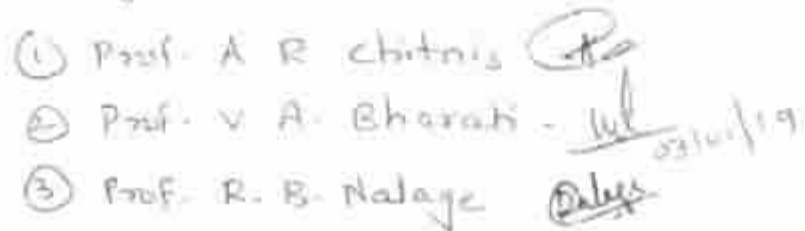 ① Prof. A R Chitnis
② Prof. V A. Bharati -
③ Prof. R. B. Nalage